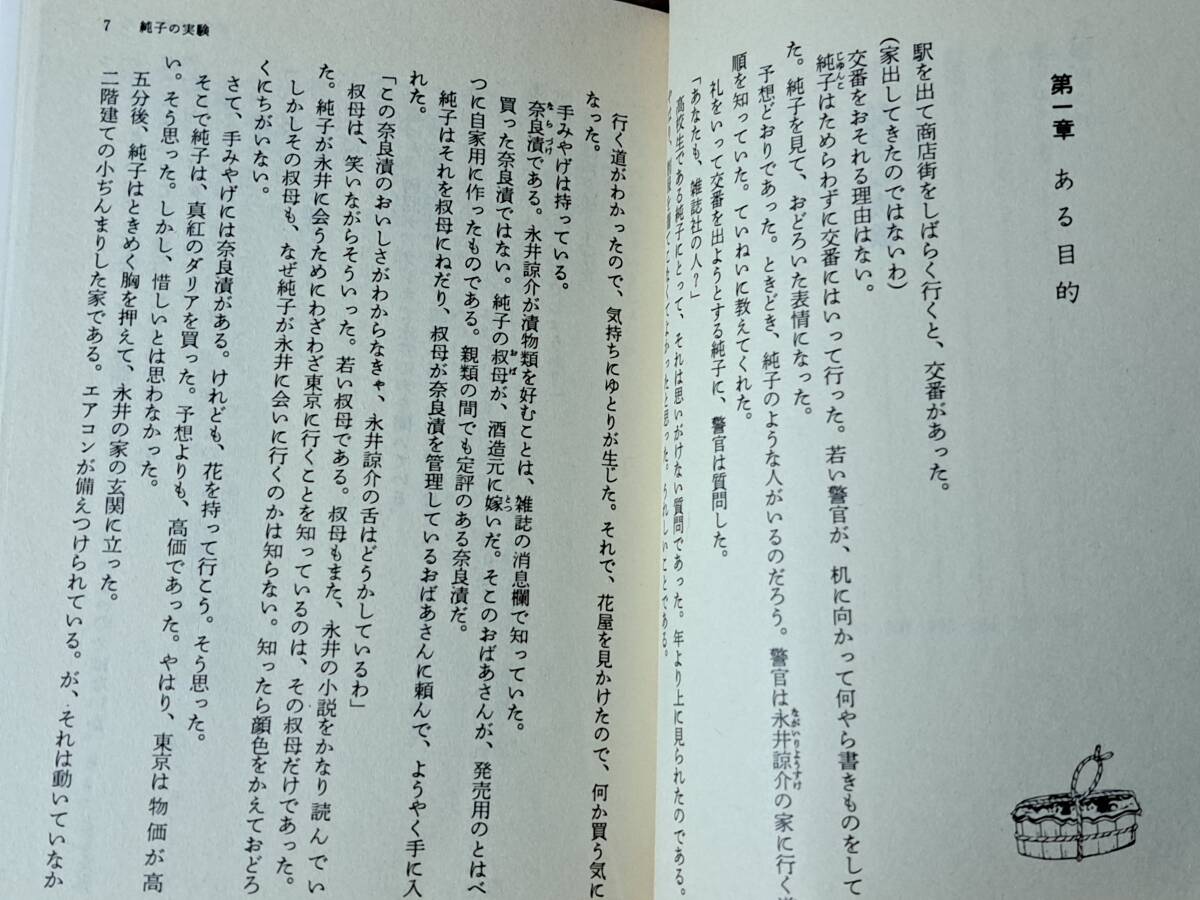 第一章 ある目的
駅を出て商店街をしばらく行くと、交番があった。
(家出してきたのではないわ)
交番をおそれる理由はない。
純子はためらわずに交番にはいって行った。若い警官が、机に向かって何やら書きものをして
じゅんこ
た。純子を見て、おどろいた表情になった。
予想どおりであった。ときどき、純子のような人がいるのだろう。警官は永井諒介の家に行く道
ながいりようすけ
順を知っていた。ていねいに教えてくれた。
礼をいって交番を出ようとする純子に、警官は質問した。
「あなたも、雑誌社の人?」
高校生である純子にとって、それは思いがけない質問であった。年より上に見られたのである。
てよかったと思った。うれしいことである。
7 純子の実験
行く道がわかったので、気持ちにゆとりが生じた。それで、花屋を見かけたので、何か買う気に
なった。
手みやげは持っている。
奈良漬である。永井諒介が漬物類を好むことは、雑誌の消息欄で知っていた。
ならづけ
買った奈良漬ではない。純子の叔母が、酒造元に嫁いだ。そこのおばあさんが、発売用のとはべ
おば
とつ
つに自家用に作ったものである。親類の間でも定評のある奈良漬だ。
純子はそれを叔母にねだり、叔母が奈良漬を管理しているおばあさんに頼んで、ようやく手に入
れた。
「この奈良漬のおいしさがわからなきゃ、永井諒介の舌はどうかしているわ」
叔母は、笑いながらそういった。若い叔母である。叔母もまた、永井の小説をかなり読んでい
た。純子が永井に会うためにわざわざ東京に行くことを知っているのは、その叔母だけであった。
しかしその叔母も、なぜ純子が永井に会いに行くのかは知らない。知ったら顔色をかえておどろ
くにちがいない。
さて、手みやげには奈良漬がある。けれども、花を持って行こう。そう思った。
そこで純子は、真紅のダリアを買った。予想よりも、高価であった。やはり、東京は物価が高
い。そう思った。しかし、惜しいとは思わなかった。
五分後、純子はときめく胸を押えて、永井の家の玄関に立った。
二階建ての小ぢんまりした家である。エアコンが備えつけられている。が、それは動いていなか